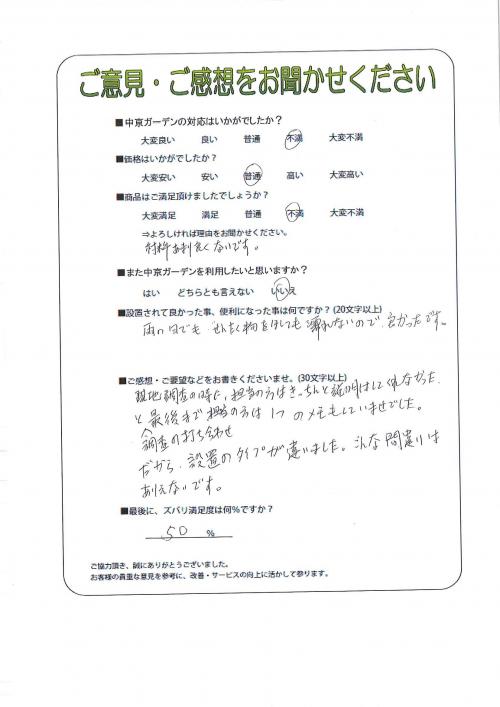 ご意見・ご感想をお聞かせください
■中京ガーデンの対応はいかがでしたか?
大変良い 良い 普通 不満 大変不満
■価格はいかがでしたか?
大変安い 安い 普通 高い 大変高い
■商品はご満足頂けましたでしょうか?
大変満足 満足 普通 不満 大変不満
⇒よろしければ理由をお聞かせください。
材料あまり良くないです。
■また中京ガーデンを利用したいと思いますか?
はい どちらとも言えない いいえ
■設置されて良かった事、便利になった事は何ですか?(20文字以上)
雨の日でも せんたく物を干しても 濡れないので 良かったです。
■ご感想・ご要望などをお書きくださいませ。(30文字以上)
現地調査の時に、担当の方はきっちんと説明はして くれなかった
と最後まで担当の方は 1つのメモもしていませでした。
調査の打ち合わせ
だから、設置のタイプが違いました。こんな間違いは
ありえないです。
■最後に、ズバリ満足度は何%ですか?
50 %
ご協力頂き、誠にありがとうございました。
お客様の貴重な意見を参考に、改善・サービスの向上に活かして参ります。